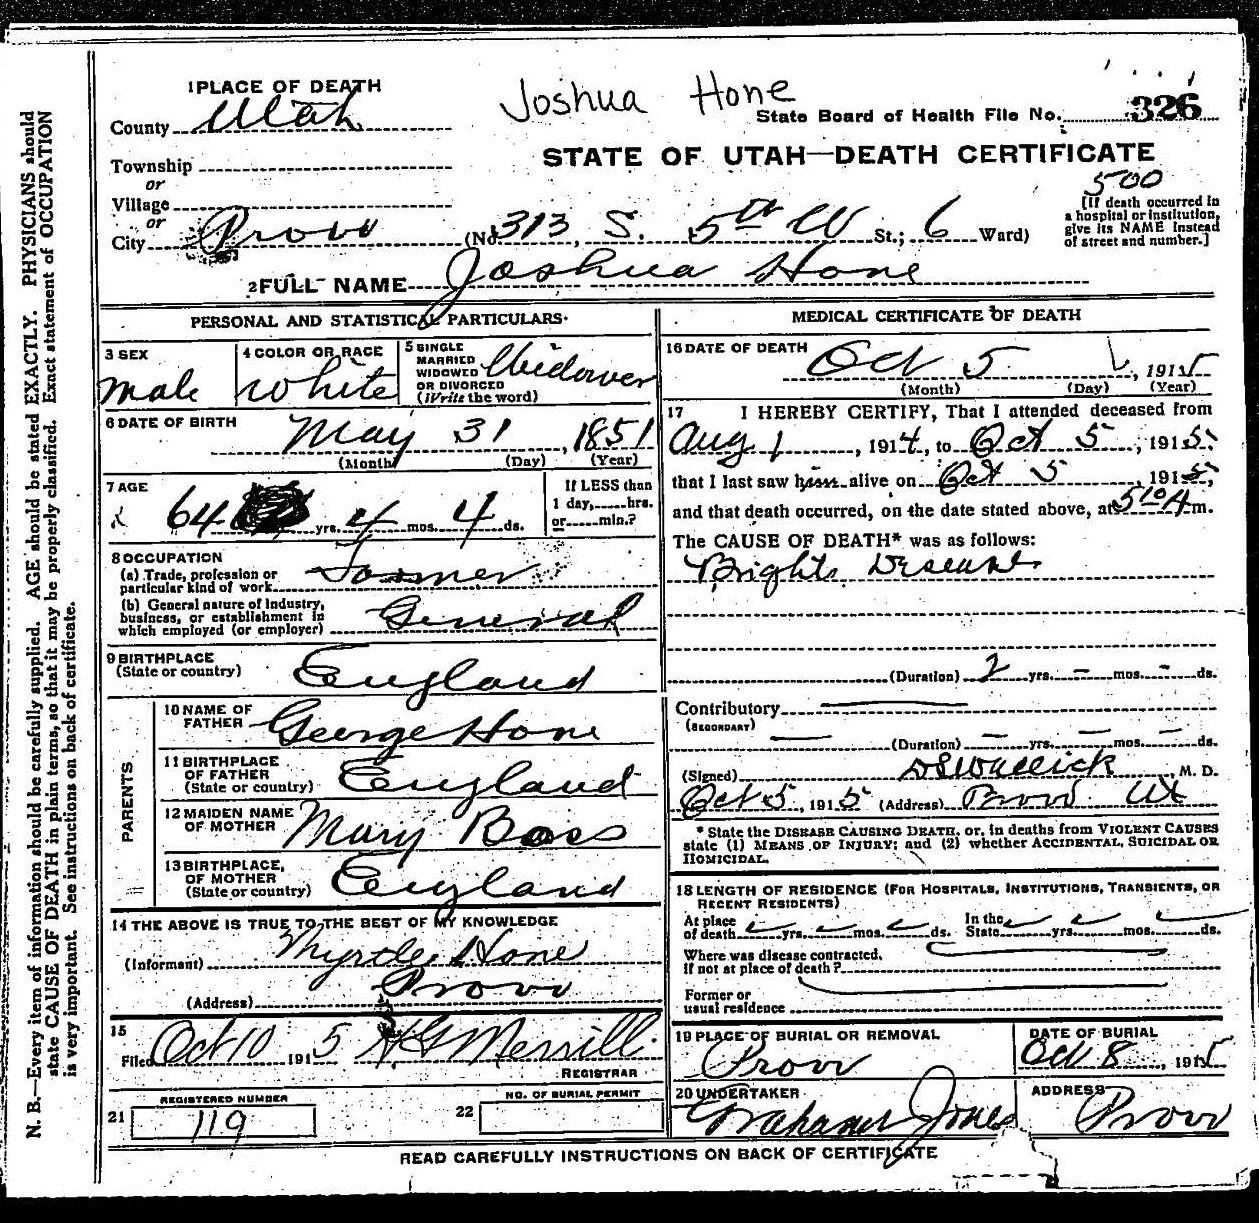 Joshua Hone
1 PLACE OF DEATH
County Utah
State Board of Health File No. 326
Township
or
Village
or
City Provo
STATE OF UTAH—DEATH CERTIFICATE
500
[If death occurred in
a hospital or institution,
give its NAME instead
of street and number.]
(No. 313, S. 5th W St.; 6 Ward)
2 FULL NAME Joshua Hone
PERSONAL AND STATISTICAL PARTICULARS
3 SEX
male
4 COLOR OR RACE
White
5 SINGLE
MARRIED
WIDOWED
OR DIVORCED
(Write the word)
Widower
6 DATE OF BIRTH
May 31, 1851
(Month) (Day) (Year)
7 AGE
64 yrs. 4 mos. 4 ds.
If LESS than
1 day, hrs.
or min.?
8 OCCUPATION
(a) Trade, profession or
particular kind of work Farmer
(b) General nature of Industry,
business, or establishment in
which employed (or employer) General
9 BIRTHPLACE
(State or country) England
PARENTS
10 NAME OF
FATHER George Hone
11 BIRTHPLACE
OF FATHER
(State or country) England
12 MAIDEN NAME
OF MOTHER Mary Boss
13 BIRTHPLACE,
OF MOTHER
(State or country) England
14 THE ABOVE IS TRUE TO THE BEST OF MY KNOWLEDGE
(Informant) Myrtle Hone
(Address) Provo
15
Filed Oct 10 1915 H G Merrill
REGISTRAR
21
REGISTERED NUMBER
119
22
NO. OF BURIAL PERMIT
MEDICAL CERTIFICATE OF DEATH
16 DATE OF DEATH
Oct 5, 1915
(Month) (Day) (Year)
17 I HEREBY CERTIFY, That I attended deceased from
Aug 1, 1914, to Oct 5, 1915,
that I last saw him alive on Oct 5 1915,
and that death occurred, on the date stated above, at 5 10 A m.
The CAUSE OF DEATH* was as follows:
Brights Disease
(Duration) 2 yrs. – mos. – ds.
Contributory
(SECONDARY)
(Duration) – yrs. – mos. – ds.
(Signed) M. D.
Oct 5, 1915 (Address) Provo Ut
* State the DISEASE CAUSING DEATH, or, in deaths from VIOLENT CAUSES
state (1) MEANS OF INJURY; and (2) whether ACCIDENTAL, SUICIDAL OR
HOMICIDAL.
18 LENGTH OF RESIDENCE (FOR HOSPITALS, INSTITUTIONS, TRANSIENTS, OR
RECENT RESIDENTS)
At place
of death yrs. mos. ds. In the
State yrs. mos. ds.
Where was disease contracted.
If not at place of death?
Former or
usual residence
19 PLACE OF BURIAL OR REMOVAL
Provo
DATE OF BURIAL
Oct 8, 1915
20 UNDERTAKER
Jones
ADDRESS
Provo
READ CAREFULLY INSTRUCTIONS ON BACK OF CERTIFICATE
N. B.—Every item of information should be carefully supplied. AGE should be stated EXACTLY. PHYSICIANS should
state CAUSE OF DEATH in plain terms, so that it may be properly classified. Exact statement of OCCUPATION
is very important. See instructions on back of certificate.